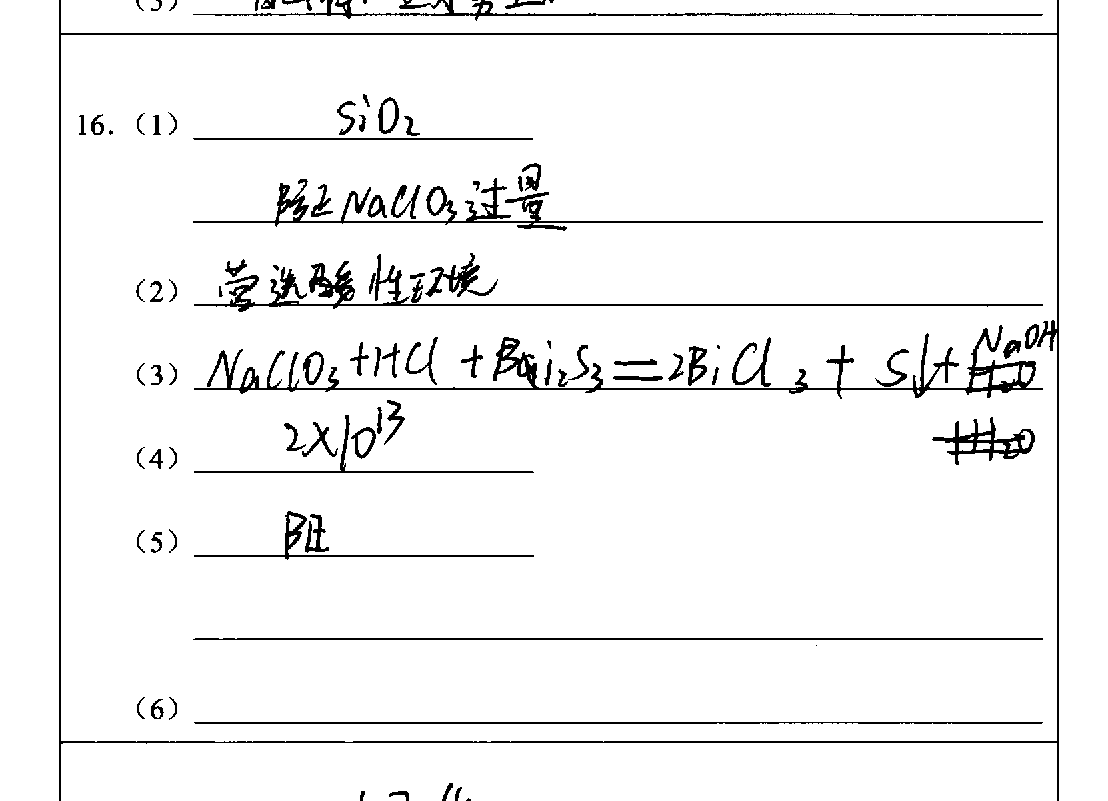 16.（1） SiO₂
NaClO₃过量
（2） 营造酸性环境
（3） NaClO₃+HCl+Bi₂S₃=2BiCl₃+S↓+NaOH
（4） 2×10¹³
（5） 阳
（6）